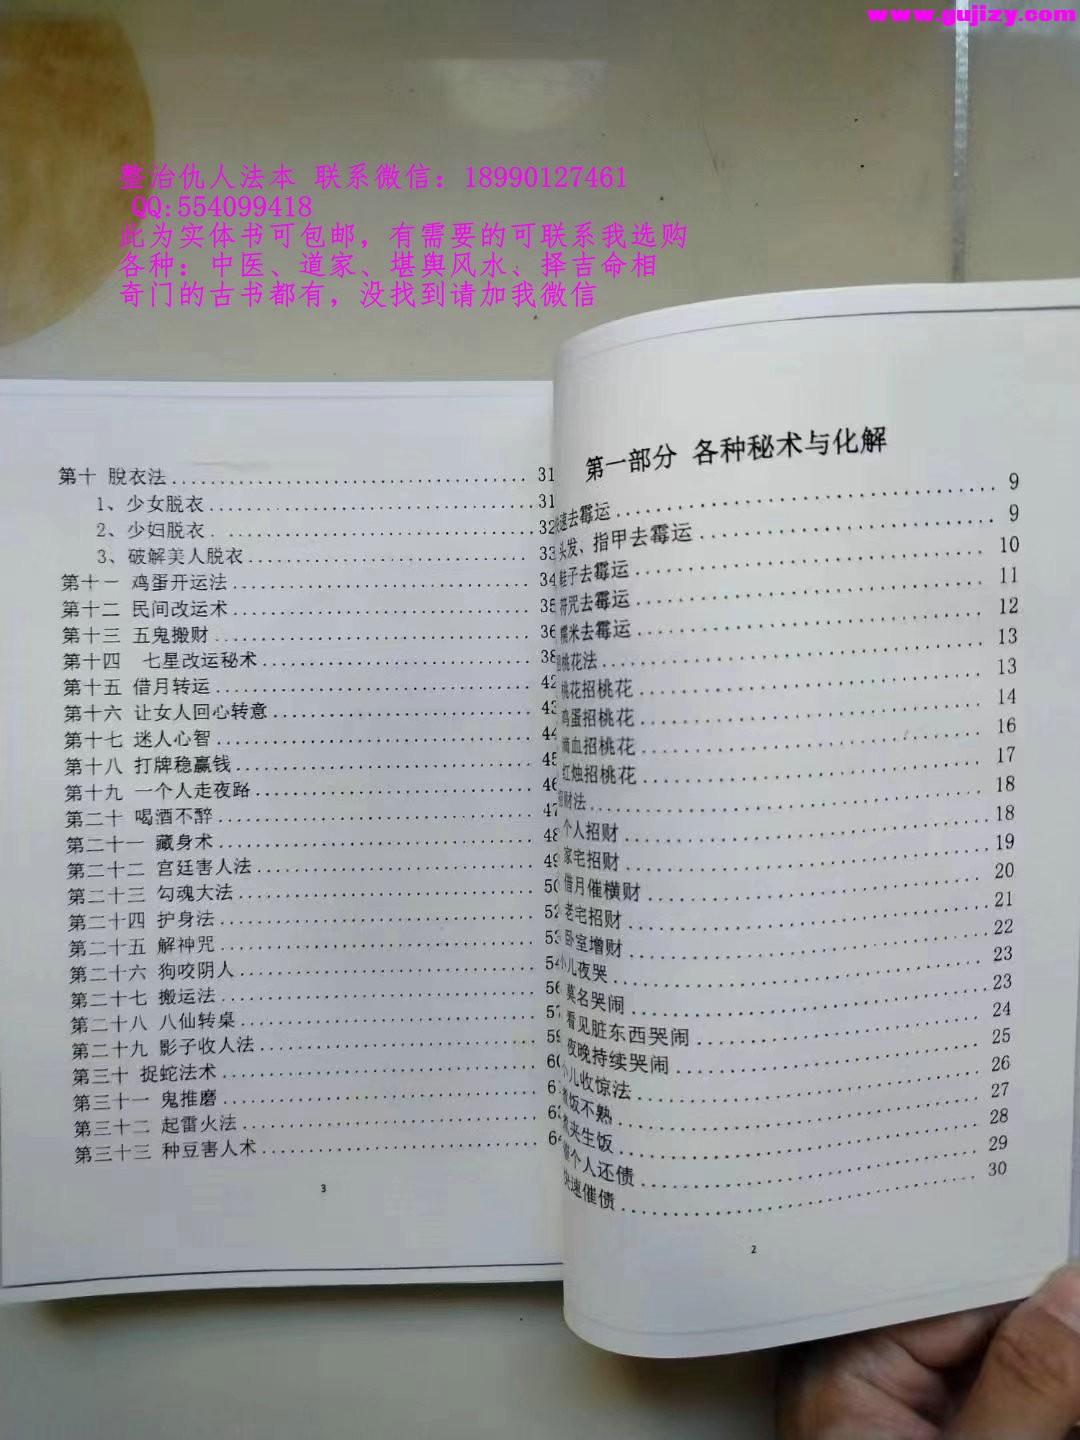 www.gujizy.com
整治仇人法本 联系微信：18990127461
QQ:554099418
此为实体书可包邮，有需要的可联系我选购
各种：中医、道家、堪舆风水、择吉命相
奇门的古书都有，没找到请加我微信
第十 脱衣法................................31
1、少女脱衣................................31
2、少妇脱衣................................32
3、破解美人脱衣................................33
第十一 鸡蛋开运法................................34
第十二 民间改运术................................35
第十三 五鬼搬财................................36
第十四 七星改运秘术................................38
第十五 借月转运................................42
第十六 让女人回心转意................................43
第十七 迷人心智................................44
第十八 打牌稳赢钱................................45
第十九 一个人走夜路................................46
第二十 喝酒不醉................................47
第二十一 藏身术................................48
第二十二 宫廷害人法................................49
第二十三 勾魂大法................................50
第二十四 护身法................................52
第二十五 解神咒................................53
第二十六 狗咬阴人................................54
第二十七 搬运法................................56
第二十八 八仙转桌................................57
第二十九 影子收人法................................59
第三十 捉蛇法术................................60
第三十一 鬼推磨................................6
第三十二 起雷火法................................62
第三十三 种豆害人术................................64
3
第一部分 各种秘术与化解
速去霉运................................9
头发、指甲去霉运................................9
鞋子去霉运................................10
符咒去霉运................................11
糯米去霉运................................12
桃花法................................13
桃花招桃花................................13
鸡蛋招桃花................................14
滴血招桃花................................16
红烛招桃花................................17
招财法................................18
个人招财................................18
家宅招财................................19
借月催横财................................20
老宅招财................................21
卧室增财................................22
小儿夜哭................................23
莫名哭闹................................23
看见脏东西哭闹................................24
夜晚持续哭闹................................25
小儿收惊法................................26
煮饭不熟................................27
煮夹生饭................................28
个人还债................................29
快速催债................................30
2